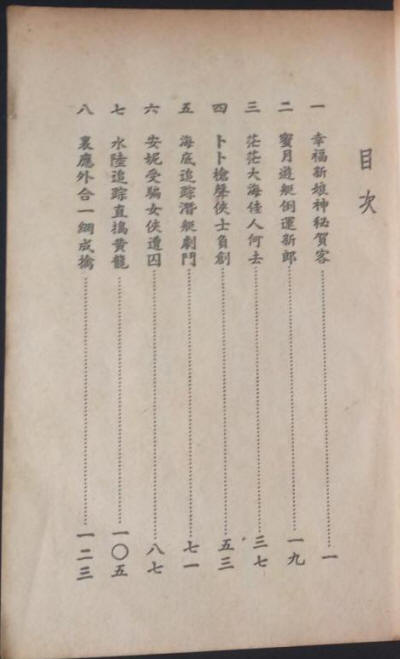 目次
一 幸福新娘神秘賀客………一
二 蜜月遊艇倒運新郎………一九
三 茫茫大海佳人何去………三七
四 卜卜槍聲俠士負創………五三
五 海底追踪潛艇劇鬥………七一
六 安妮受騙女俠遭囚………八七
七 水陸追踪直搗黃龍………一〇五
八 裏應外合一網成擒………一二三